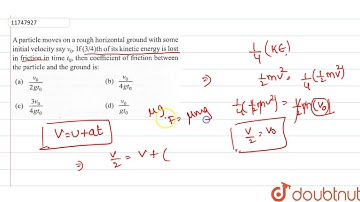 11747927
A particle moves on a rough horizontal ground with some initial velocity say v₀. If (3/4)th of its kinetic energy is lost in friction in time t₀, then coefficient of friction between the particle and the ground is:
(a) v₀/2gt₀ (b) v₀/4gt₀
(c) 3v₀/4gt₀ (d) v₀/gt₀
V=u+at
⇒ v/2 = v+(
μg
F = μmg
1/4 (KE)
⇒ 1/2 mv² = 1/4 (1/2 mv²)
1/4 (1/2 mv²) = 1/2 m (v₀)
v/2 = v₀
doubtnut